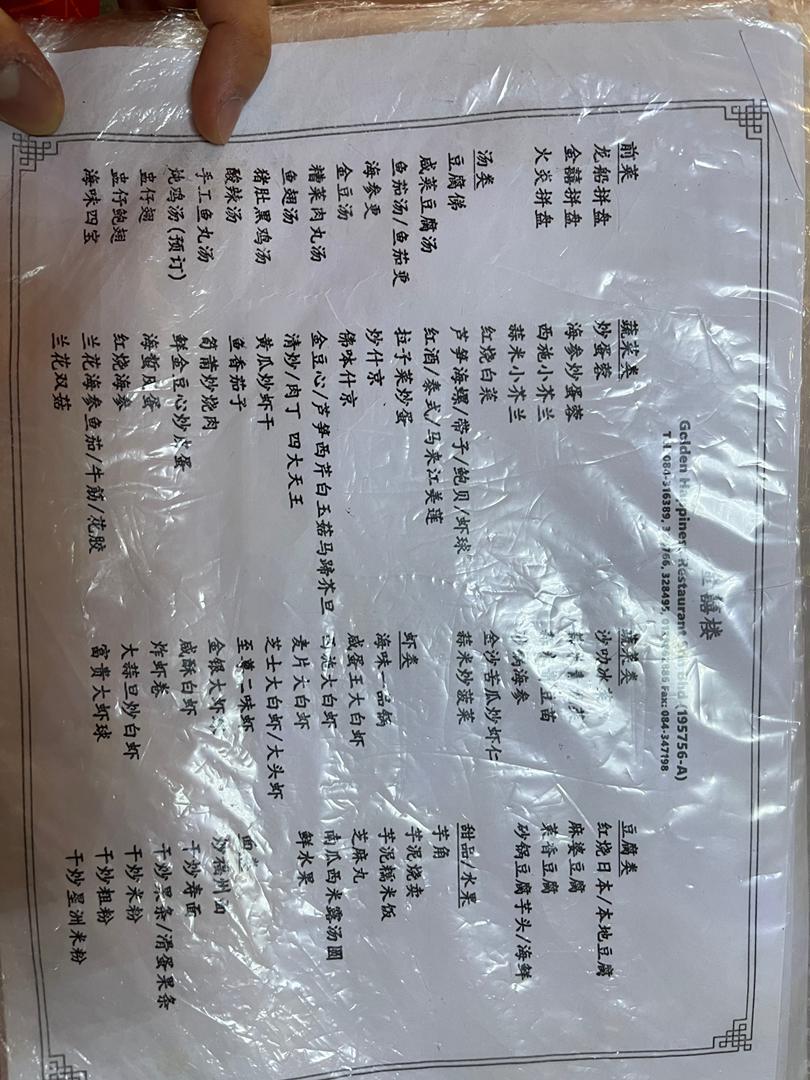 禧楼
Golden Happiness Restaurant Sdn Bhd (195756-A)
Tel: 084-316389, 328495, Fax: 084-347198
前菜
龙船拼盘
金禧拼盘
火炎拼盘
汤类
豆腐佛
咸菜豆腐汤
鱼茄汤/鱼茄更
海参更
金豆汤
糟菜肉丸汤
鱼翅汤
猪肚黑鸡汤
酸辣汤
手工鱼丸汤
炖鸡汤(预订)
虫仔翅
虫仔鲍翅
海味四宝
蔬菜类
炒蛋蓉
海参炒蛋蓉
西施小芥兰
蒜米小芥兰
红烧白菜
芦笋海螺/带子/鲍贝/虾球
红酒/泰式/马来江美莲
拉子菜炒蛋
炒什京
佛味什京
金豆心/芦笋西芹白玉菇马蹄芥旦
清炒/肉丁 四大天王
黄瓜炒虾干
鱼香茄子
筍莆炒烧肉
鲜金豆心炒皮蛋
海蜇皮蛋
红烧海参
兰花海参鱼茄/牛筋/花胶
兰花双菇
蔬菜类
沙叻冰
豆苗
海参
金沙苦瓜炒虾仁
蒜米炒菠菜
虾类
海味一品锅
咸蛋王大白虾
西施大白虾
麦片大白虾
芝士大白虾/大头虾
至尊一味虾
金银大虾
咸酥白虾
炸虾卷
大蒜旦炒白虾
富贵大虾球
豆腐类
红烧日本/本地豆腐
麻婆豆腐
菜香豆腐
砂锅豆腐芋头/海鲜
甜品/水果
芋角
芋泥烧卖
芋泥糯米饭
芝麻丸
南瓜西米露汤圆
鲜水果
面
炒福州面
干炒寿面
干炒果条/滑蛋果条
干炒米粉
干炒粗粉
干炒星洲米粉